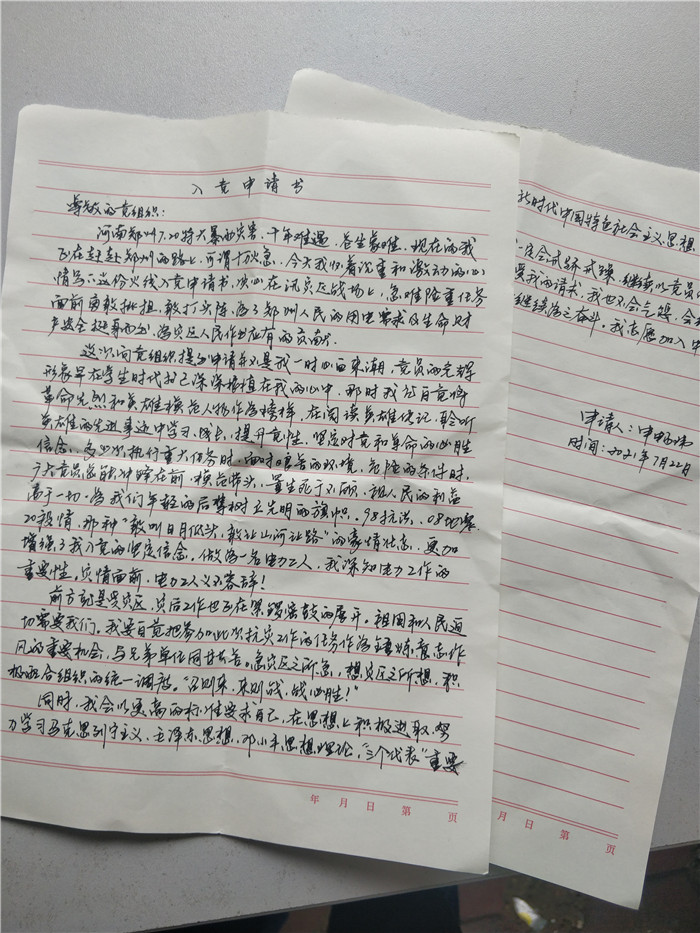 入党申请书
尊敬的党组织：
河南郑州7.20特大暴雨灾害，千年难遇，苍生蒙难。现在的我
正在赶赴郑州的路上，可谓十万火急，今天我怀着沉重和激动的心
情写下这份火线入党申请书，决心在汛灾区战场上，急难险重任务
面前勇敢担担，敢打头阵，为了郑州人民的用电需求及生命财
产安全挺身而出，为灾区人民作出应有的贡献！
这次向党组织提出申请并不是我一时心血来潮，党员的光辉
形象早在学生时代就已深深根植在我的心中，那时我就自觉将
革命先烈和英雄模范人物作为榜样，在阅读英雄传记，聆听
英雄的先进事迹中学习、成长，提升党性，坚定对党和革命的必胜
信念，多少次执行重大任务时，面对艰苦的环境，危险的条件时，
广大党员总能冲锋在前，模范带头，置生死于不顾，视人民的利益
高于一切，为我们年轻的后辈树立光明的旗帜。98抗洪，08地震
20疫情，那种“敢叫日月低头，敢让山河让路”的豪情壮志，更加
增强了我入党的坚定信念。做为一名电力工人，我深知电力工作的
重要性，灾情面前，电力工人义不容辞！
前方就是受灾区，灾后工作也正在紧锣密鼓的展开。祖国和人民迫
切需要我们，我要自觉把参加此次抗灾工作的任务作为锤炼意志作
风的重要机会，与兄弟单位同甘共苦。急灾区之所急，想灾区之所想，积
极配合组织的统一调度。“召则来，来则战，战必胜！”
同时，我会以更高的标准要求自己，在思想上积极进取，努
力学习马克思列宁主义、毛泽东思想、邓小平思想理论，“三个代表”重要
年 月 日 第 页
新时代中国特色社会主义思想
一定会戒骄戒躁，继续以党员
要我的请求，我也不会气馁，会
继续为之奋斗。我志愿加入中
申请人：申
时间：2021年7月22日
月 日 第 页